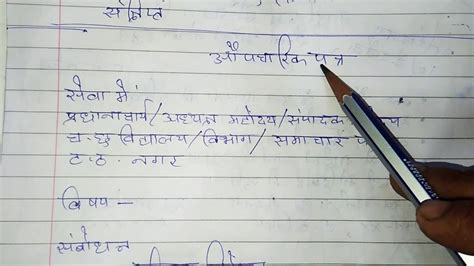 संक्षिप्त
औपचारिक पत्र
सेवा में
प्रधानाचार्य/अध्यक्ष महोदय/संपादक
च.छ विद्यालय/विभाग/समाचार
ट.ठ. नगर
विषय -
संबोधन